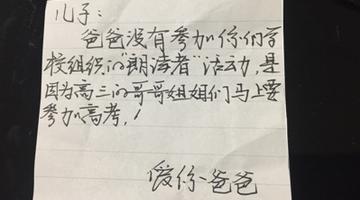 儿子：
爸爸没有参加你们学
校组织的“朗读者”活动，是
因为高三的哥哥姐姐们马上要
参加高考，
爱你爸爸